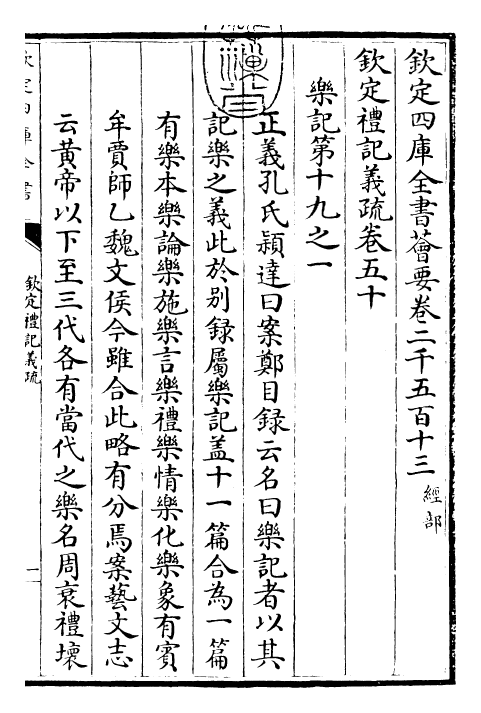 欽定四庫全書薈要卷二千五百十三 經部
欽定禮記義疏卷五十
樂記第十九之一
正義孔氏穎達曰案鄭目録云名曰樂記者以其
記樂之義此於别録屬樂記盖十一篇合為一篇
有樂本樂論樂施樂言樂禮樂情樂化樂象有賓
牟賈師乙魏文侯今雖合此略有分焉案藝文志
云黄帝以下至三代各有當代之樂名周衰禮壞
欽定四庫全書
欽定禮記義疏
一